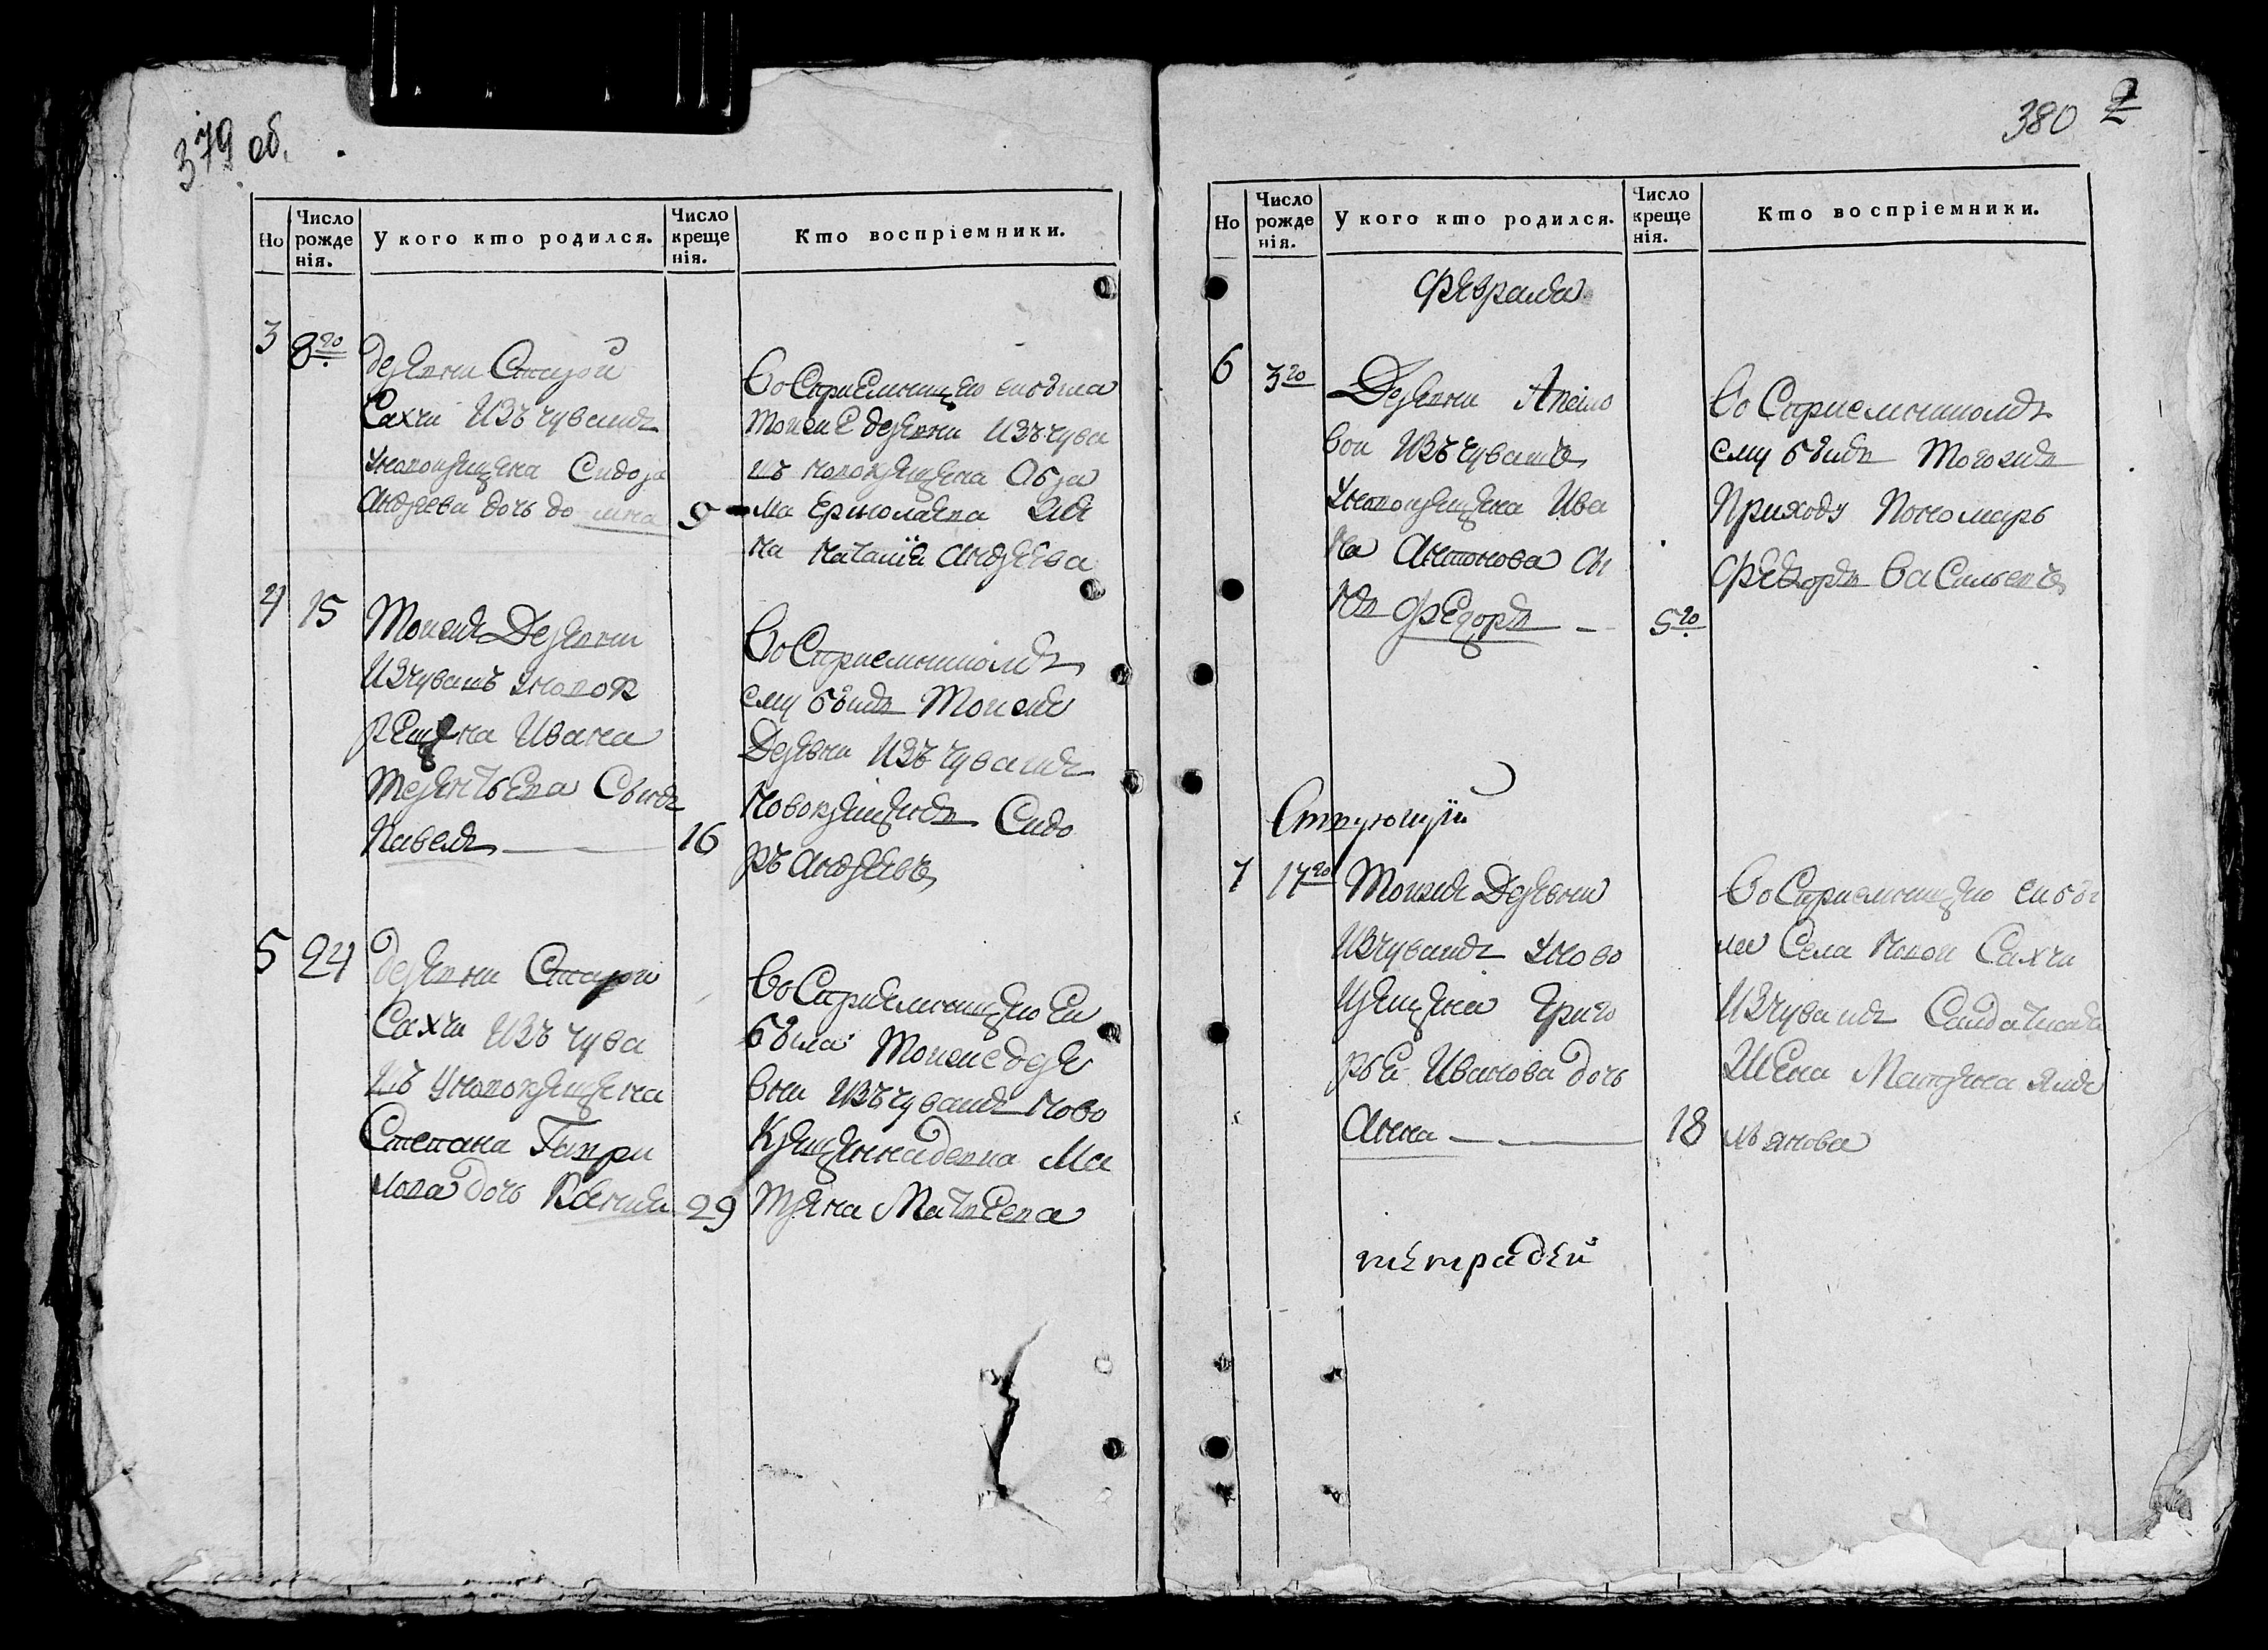 379 об.
Но
Число рожде нія.
У кого кто родился.
Число креще нія.
Кто воспріемники.
3
8го
деревни Старой
Сахчи изъ чувашъ
уновокрещена Сидора
Андреева дочь Домна
9
Восприемницею была
тоеже деревни изъ чува
шъ новокрещена
Ермолаева же
на Наталия Андреева
4
15
Тоежъ деревни
изчувашъ уновок
рещена Ивана
Терентьева сынъ
Павелъ
16
Восприемникомъ
ему былъ тоежъ
деревни изъ чувашъ
новокрещенъ Сидо
ръ Андреевъ
5
24
деревни Старой
Сахчи изъ чува
шъ уновокрещена
Степана Гаври
лова дочь
29
Восприемницею ей
была тоеже дере
вни изъ чувашъ ново
крещенна девка Ма
трена Матвеева
380
2
Но
Число рожде нія.
У кого кто родился.
Число креще нія.
Кто воспріемники.
Февраля
6
3го
Деревни
вой изъ чувашъ
уновокрещена Ива
на Антонова сы
нъ Федоръ
5го
Восприемникомъ
ему былъ тогожъ
приходу пономарь
Федоръ Васильевъ
7
17го
Тоежъ деревни
изчувашъ уново
крещена Григо
рья Иванова дочь
Анна
18
Восприемницею ей бы
ла села Новой Сахчи
изчувашъ салдатская
жена Матрена Емель
янова
тетрадей